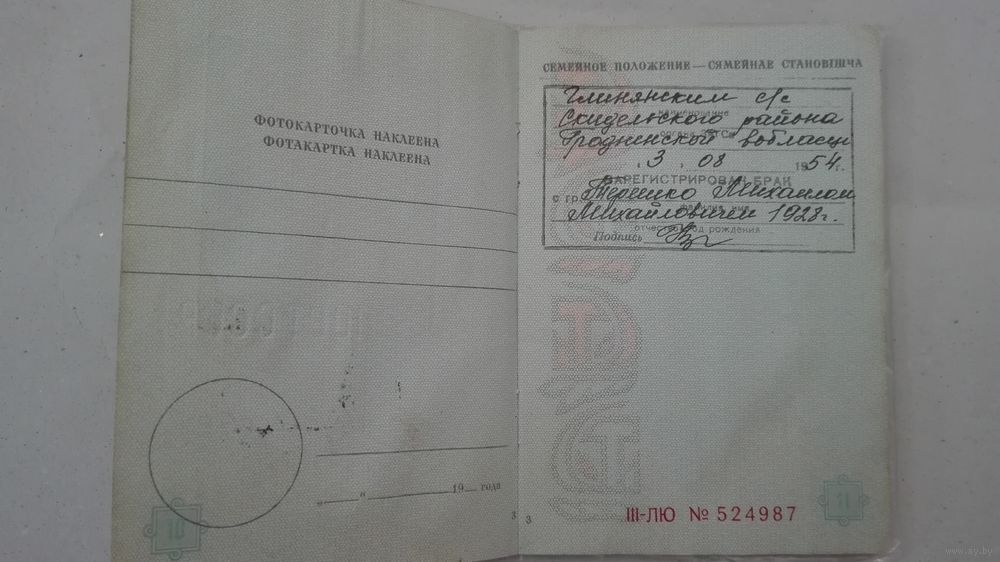 ФОТОКАРТОЧКА НАКЛЕЕНА
ФОТАКАРТКА НАКЛЕЕНА
„ “ 19 года
3
10
СЕМЕЙНОЕ ПОЛОЖЕНИЕ — СЯМЕЙНАЕ СТАНОВІШЧА
Глинянским с/с
наименование
Скидельского района
органа ЗАГСа
Гродненской вобласци
3 . 08 1954 г.
ЗАРЕГИСТРИРОВАН БРАК
с гр. Терешко Михаилом
фамилия, имя,
Михайловичем 1928 г.
отчество, год рождения
Подпись
3
III-ЛЮ № 524987
11
www.ay.by